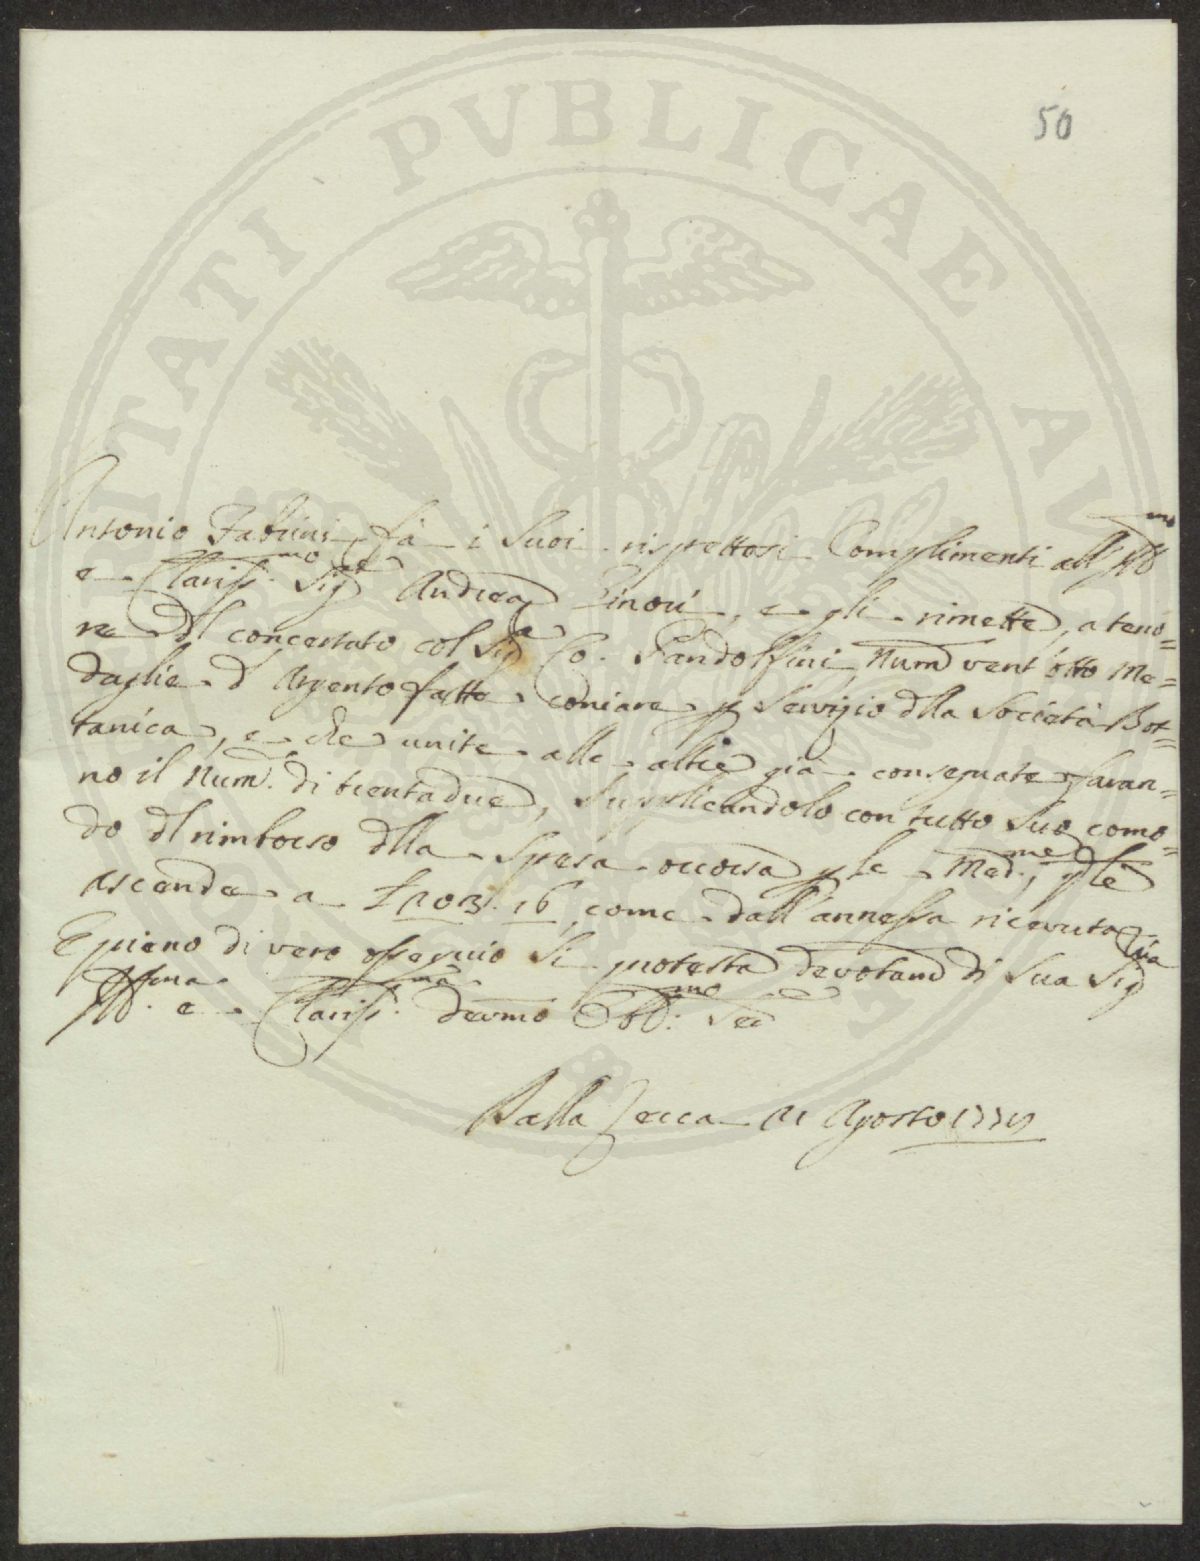 PVBLICAE
50
Antonio Fabrini fà i Suoi rispettosi Complimenti all' Ill.mo
e Clariss.mo Sig.re Andrea Ginori, e gli rimette, a teno=
re dl concertato col Sig.r Co. Pandolfini, Num. vent'otto Me=
daglie d'Argento fatte coniare p Servizio dlla Società Bot=
tanica, e che unite alle altre già consegnate faran=
no il Num. di trentadue, Supplicandolo con tutto Suo como=
do dl rimborso dlla Spesa occorsa p le Med.me, ple
ascende a 16, come dall'annessa ricevuta
E pieno di vero ossequio Si protesta devotam di Sua Sig.ria
Ill.ma e Clariss.ma devmo Obb.mo Ser
Dalla Zecca Agosto